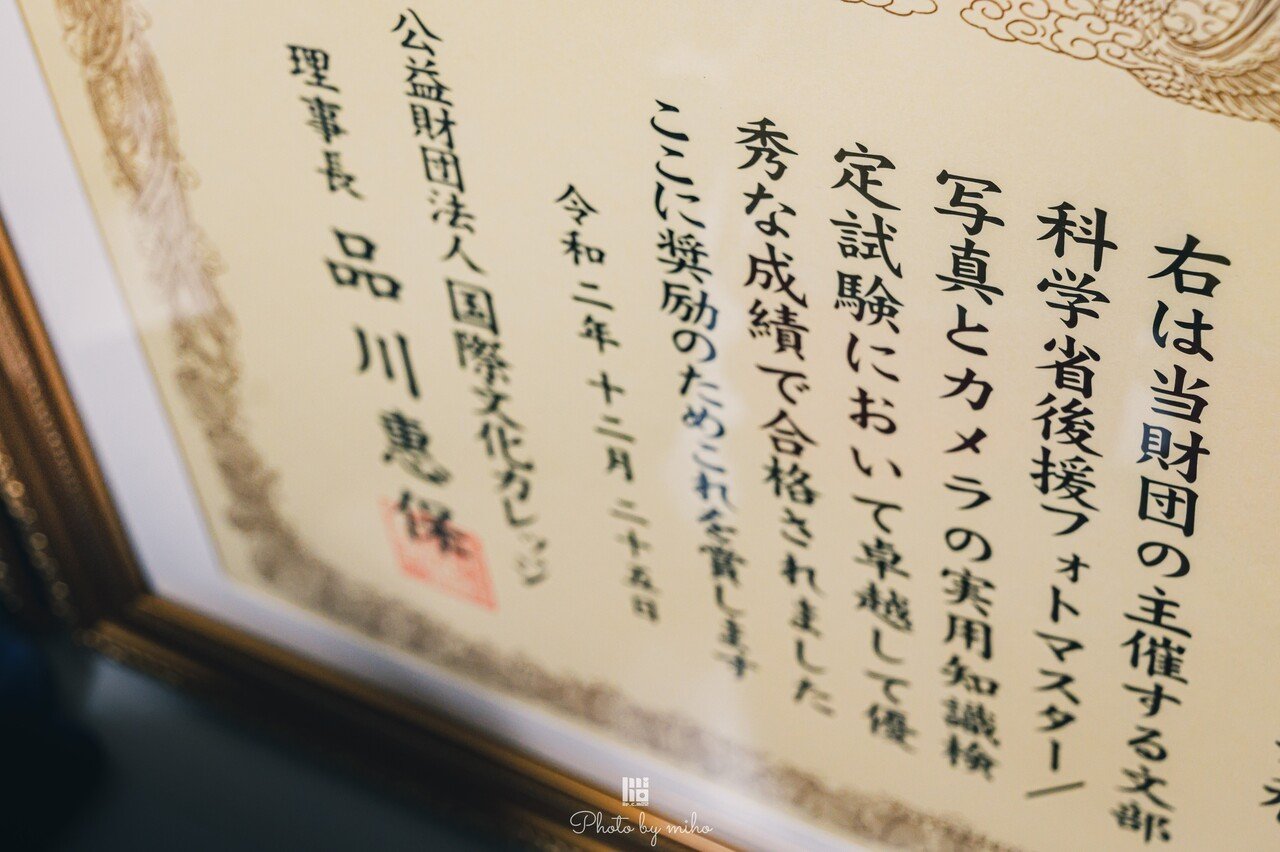 右は当財団の主催する文部
科学省後援フォトマスター/
写真とカメラの実用知識検
定試験において卓越して優
秀な成績で合格されました
ここに奨励のためこれを賞します
令和二年十二月二十五日
公益財団法人国際文化カレッジ
理事長 品川惠保
Photo by miho